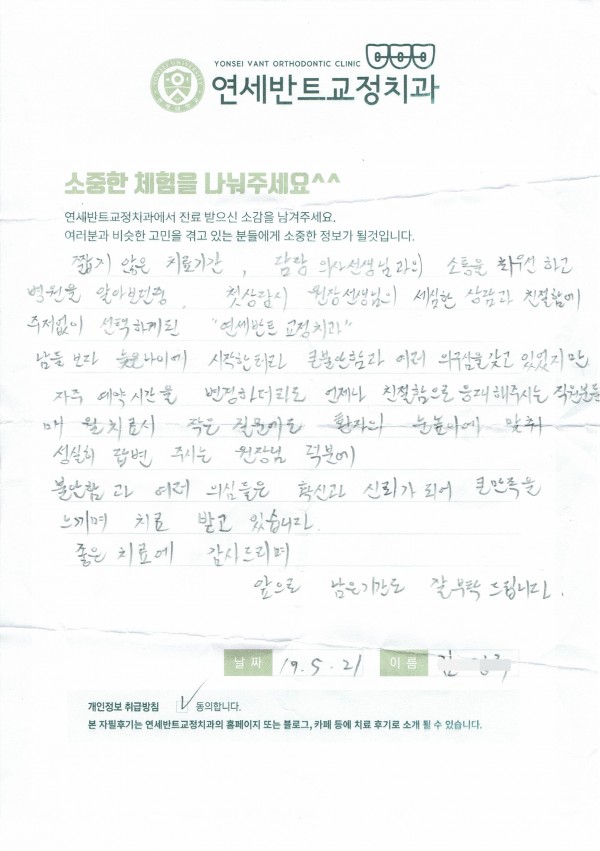 YONSEI VANT ORTHODONTIC CLINIC
연세반트교정치과
소중한 체험을 나눠주세요^^
연세반트교정치과에서 진료 받으신 소감을 남겨주세요.
여러분과 비슷한 고민을 겪고 있는 분들에게 소중한 정보가 될것입니다.
짧지 않은 치료기간, 담당 의사선생님과의 소통을 최우선 하고
병원을 알아보던중, 첫상담시 원장선생님의 세심한 상담과 친절함에
주저없이 선택하게된 "연세반트 교정치과"
남들 보다 늦은나이에 시작한터라 큰불안함과 여러 의구심을갖고 있었지만
자주 예약시간을 변경하더라도 언제나 친절함으로 응대해주시는 직원분들
매 월 치료시 작은 질문에도 환자의 눈높이에 맞춰
성실히 답변 주시는 원장님 덕분에
불안함과 여러 의심들은 확신과 신뢰가 되어 큰만족을
느끼며 치료 받고 있습니다.
좋은 치료에 감사드리며
앞으로 남은기간도 잘부탁 드립니다.
날 짜 19.5.21 이 름 김
개인정보 취급방침 동의합니다.
본 자필후기는 연세반트교정치과의 홈페이지 또는 블로그, 카페 등에 치료 후기로 소개 될 수 있습니다.